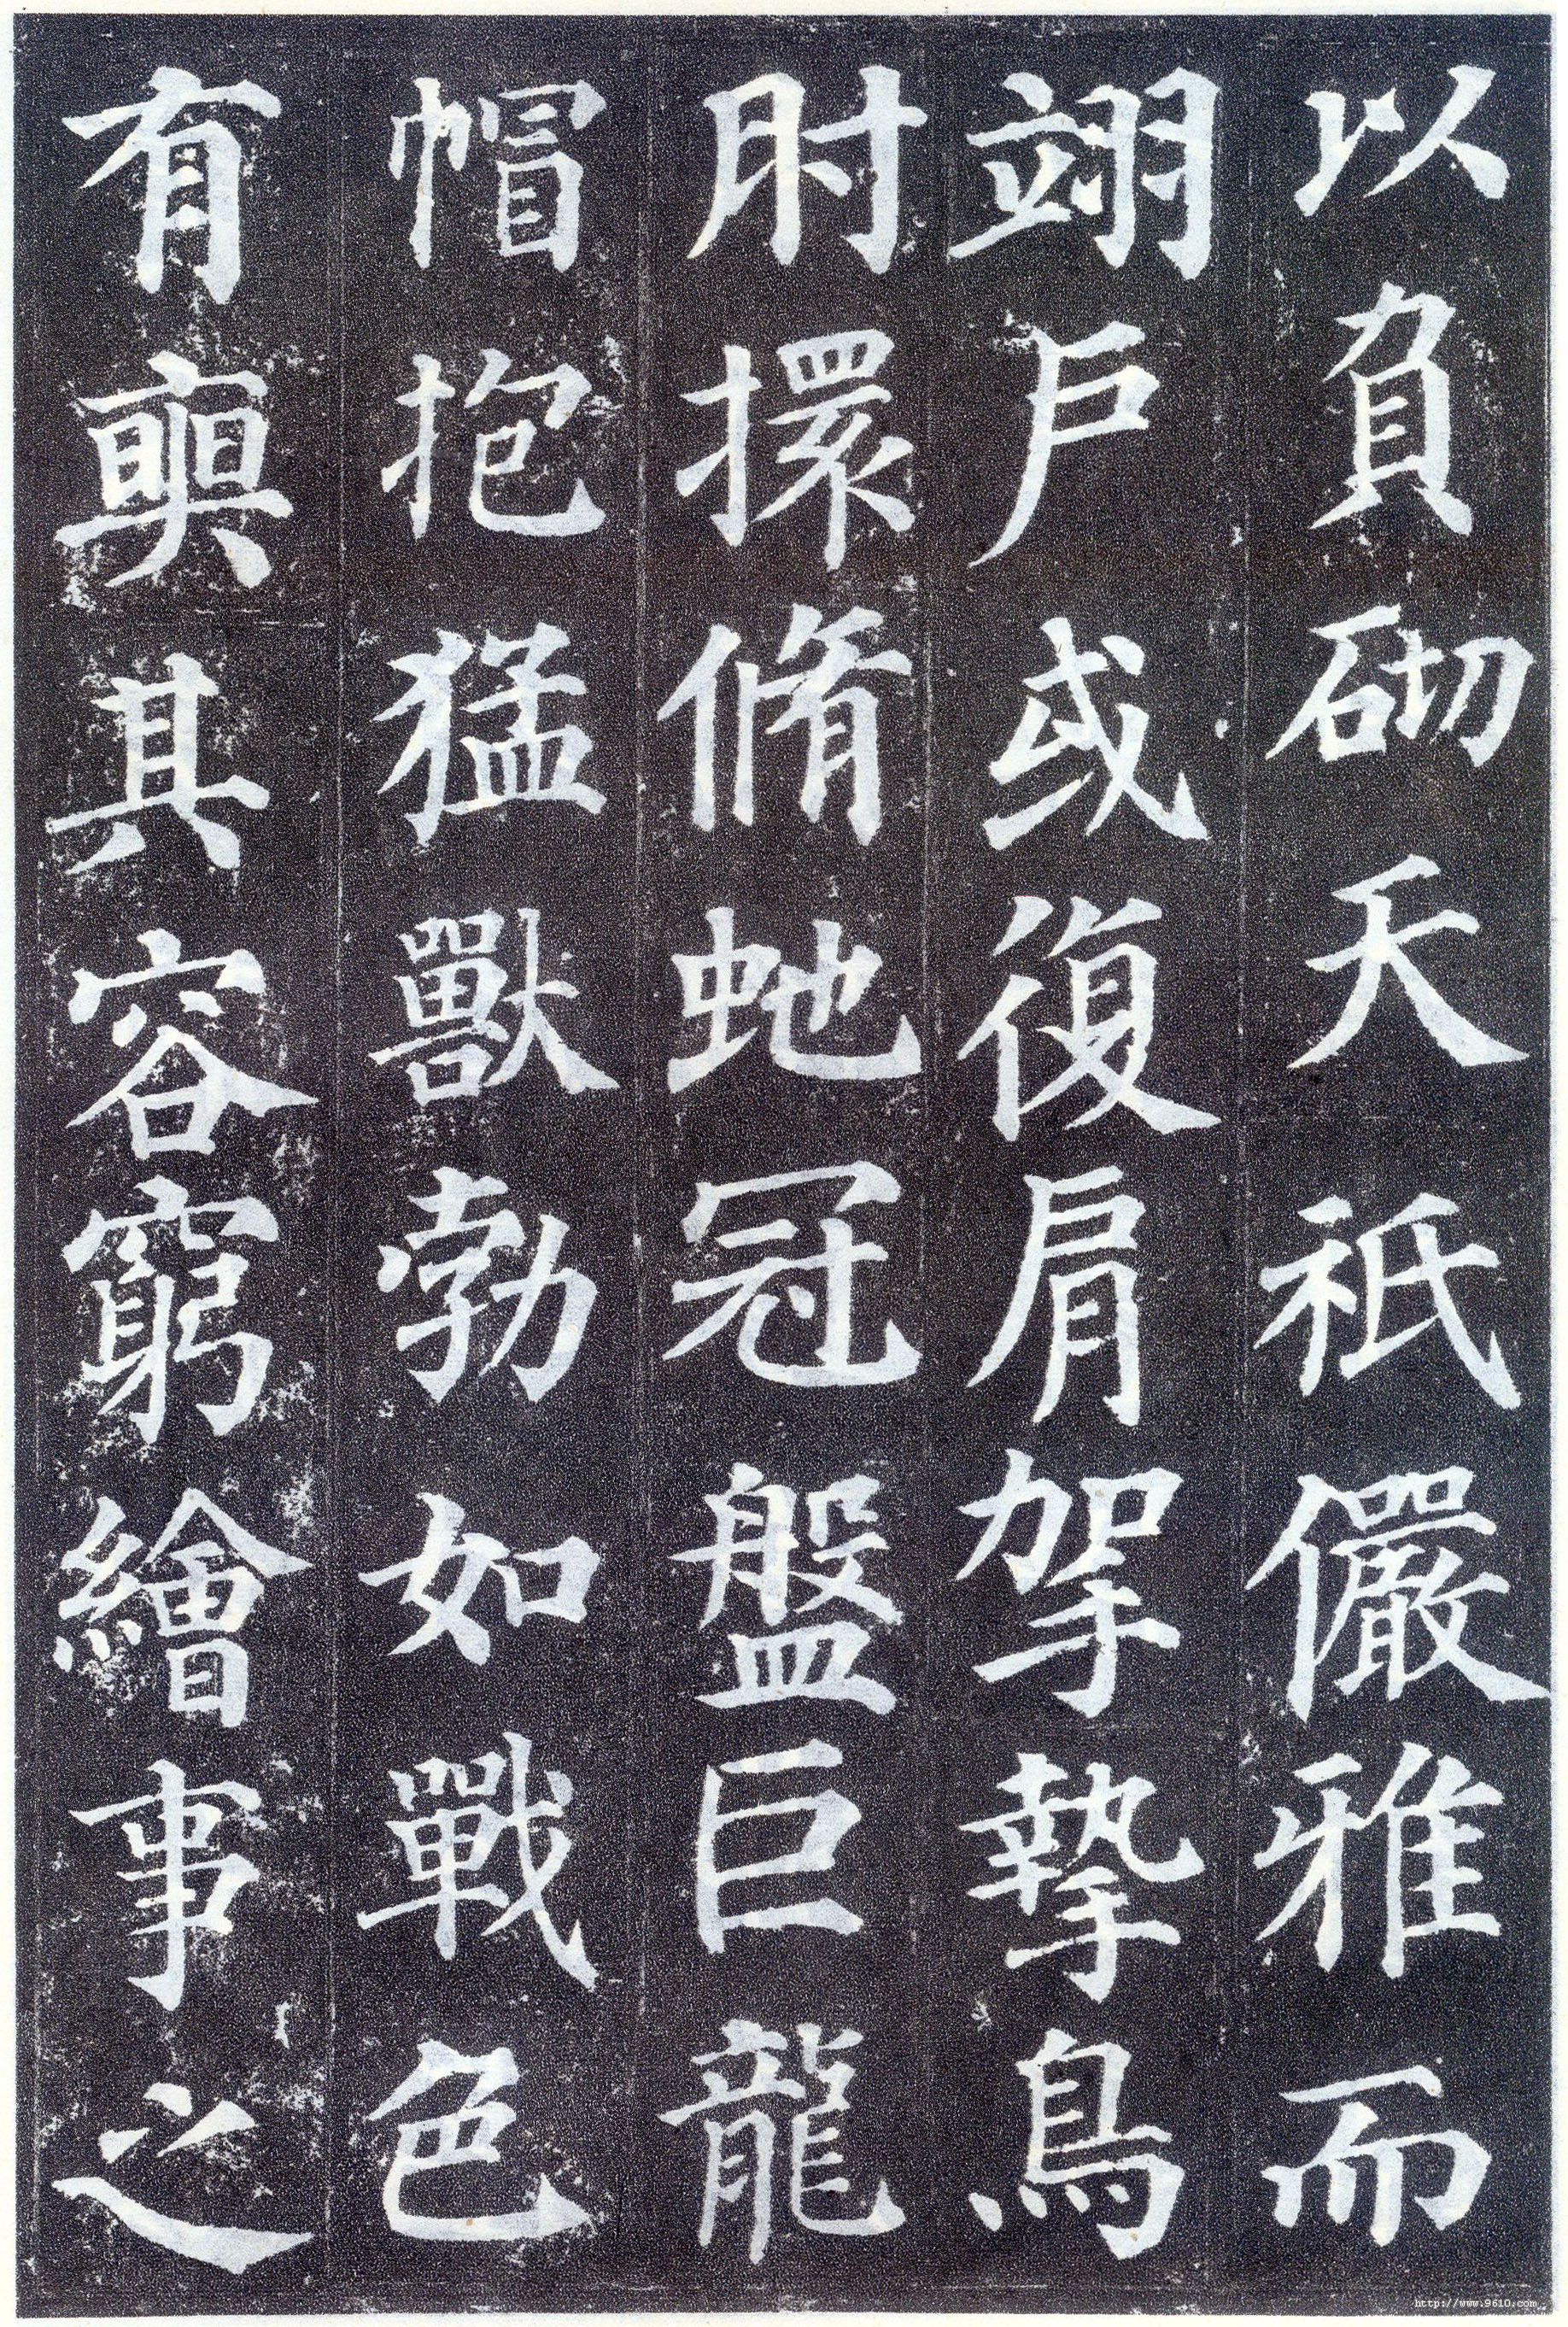 以負砌天祇儼雅而
翊戶或復肩挐摯鳥
肘擐脩虵冠盤巨龍
帽抱猛獸勃如戰色
有奭其容窮繪事之
http://www.9610.com